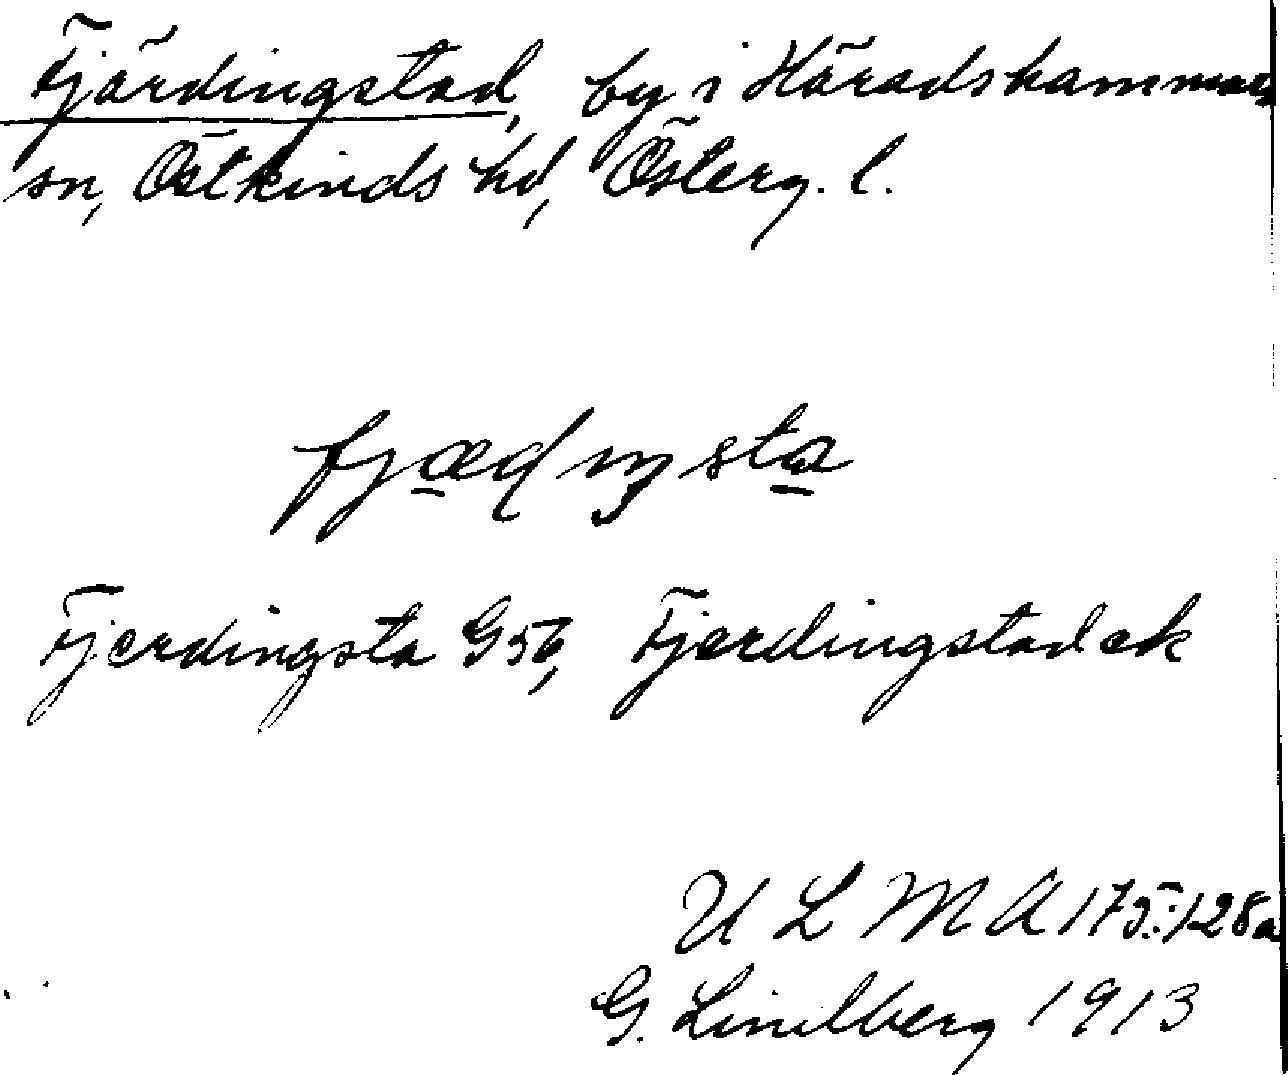 Fjärdingstad, by i Häradshammars
sn, Östkinds hd, Österg. l.
fjædiŋsta
Fjerdingsta G56, Fjerdingstad ek
U L M A 175:128a
G. Lindberg 1913